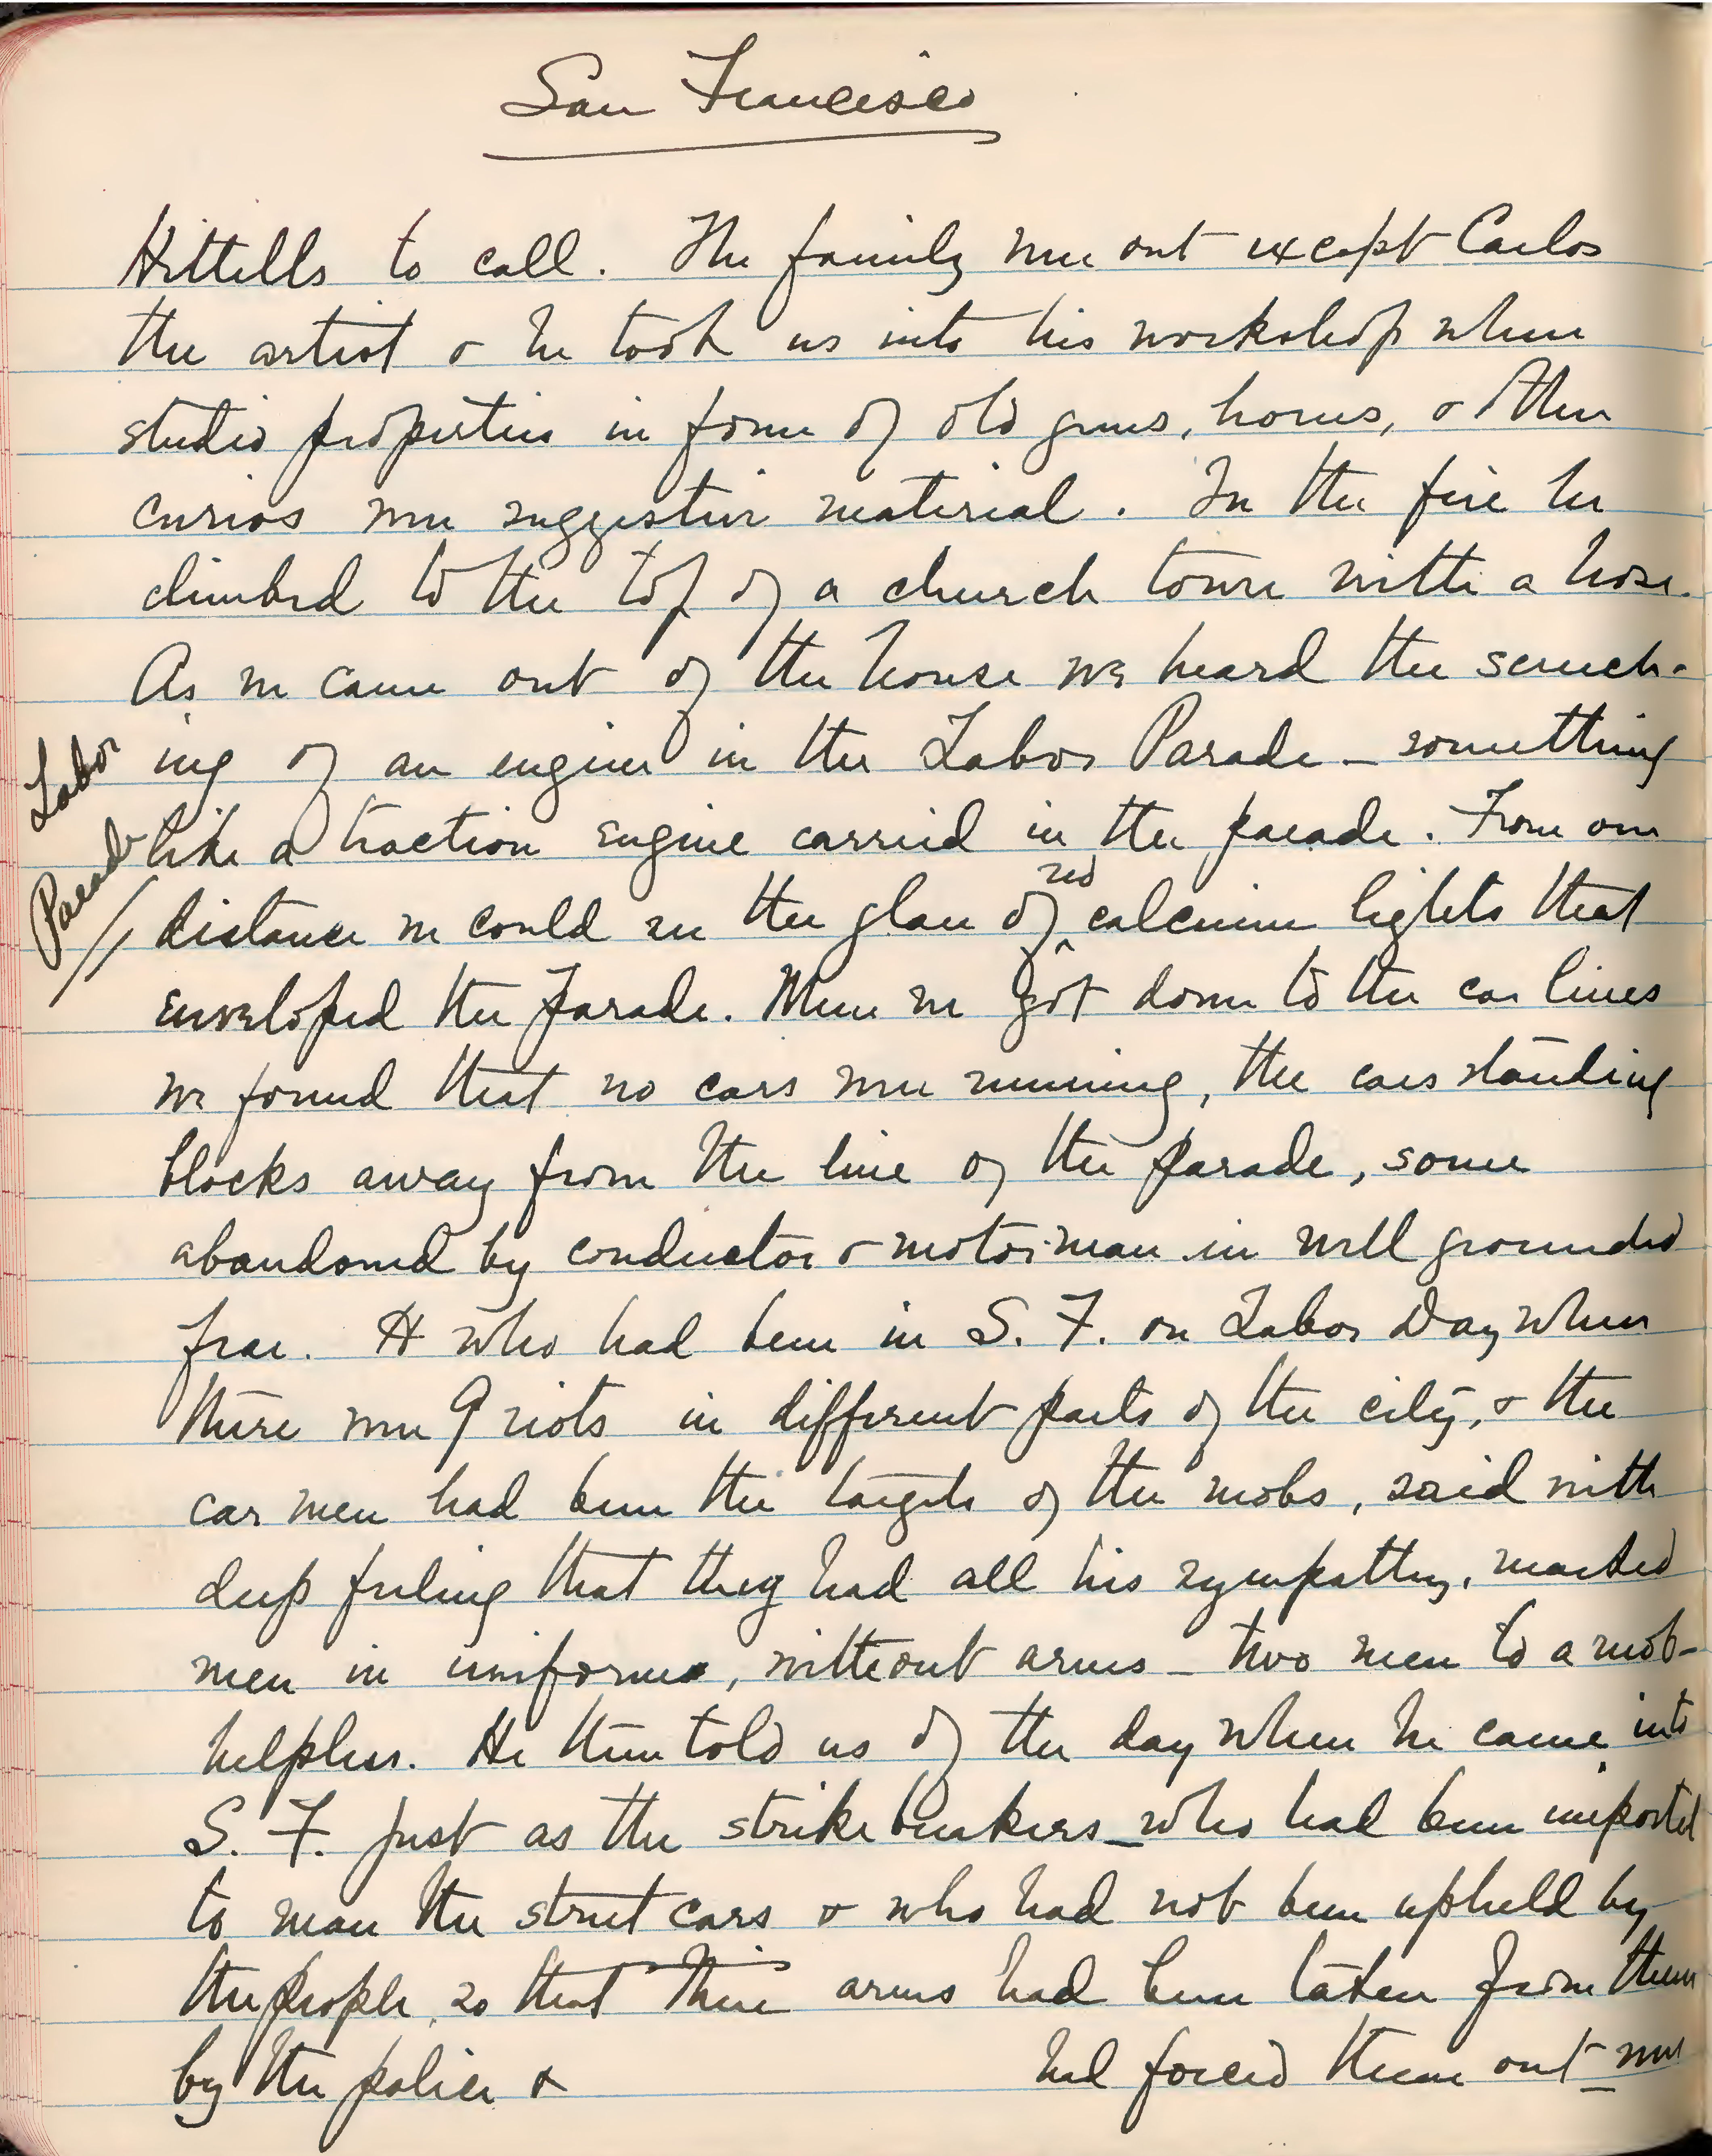 San Francisco
Hittells to call. The family were out except Carlos
the artist & he took us into his workshop where
studio properties in form of old guns, horns, & other
curios were suggestive material. In the fire he
climbed to the top of a church tower with a hose.
As we came out of the house we heard the screech-
ing of an engine in the Labor Parade – something
like a traction engine carried in the parade. From our
red
distance we could see the glare of ^ calcium lights that
enveloped the parade. When we got down to the car lines
we found that no cars were running, the cars standing
blocks away from the line of the parade, some
abandoned by conductor & motorman in well grounded
fear. H who had been in S. F. on Labor Day when
there were 9 riots in different parts of the city, & the
car men had been the targets of the mobs, said with
deep feeling that they had all his sympathy, marked
men in uniforms, without arms – two men to a mob –
helpless. He then told us of the day when he came into
S. F. just as the strike breakers – who had been imported
to man the street cars & who had not been upheld by
the people, so that their arms had been taken from them
by the police & had forced them out – were
Labor
Parade